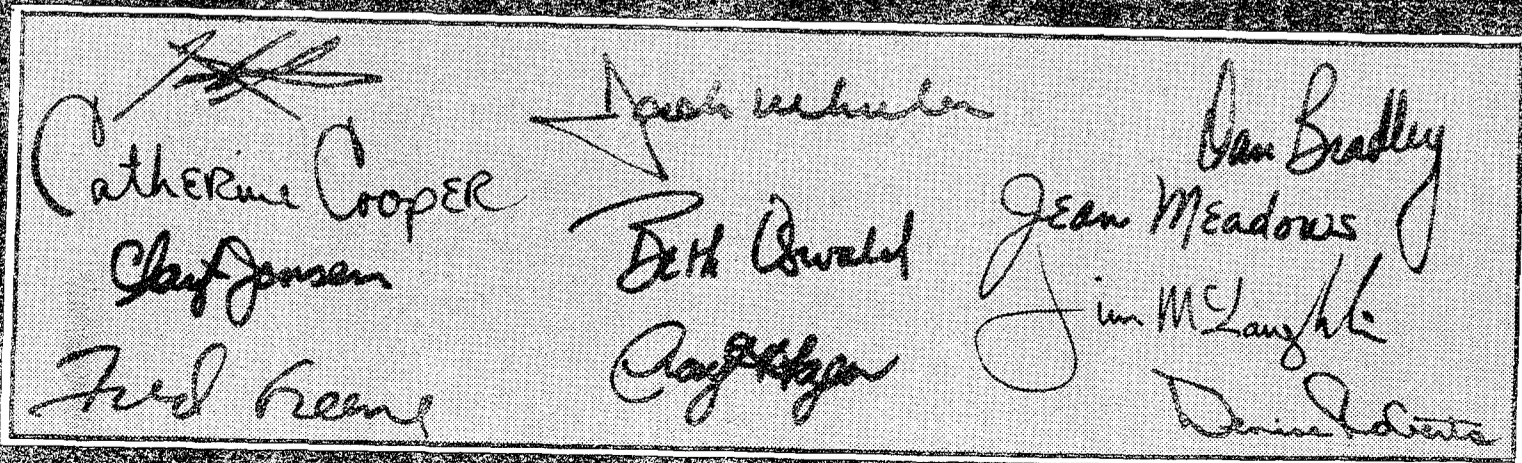 Catherine Cooper
Clay Jensen
Fred Greene
Wheeler
Beth Oswald
Dan Bradley
Jean Meadows
Jim McLaughlin
Denise Roberts